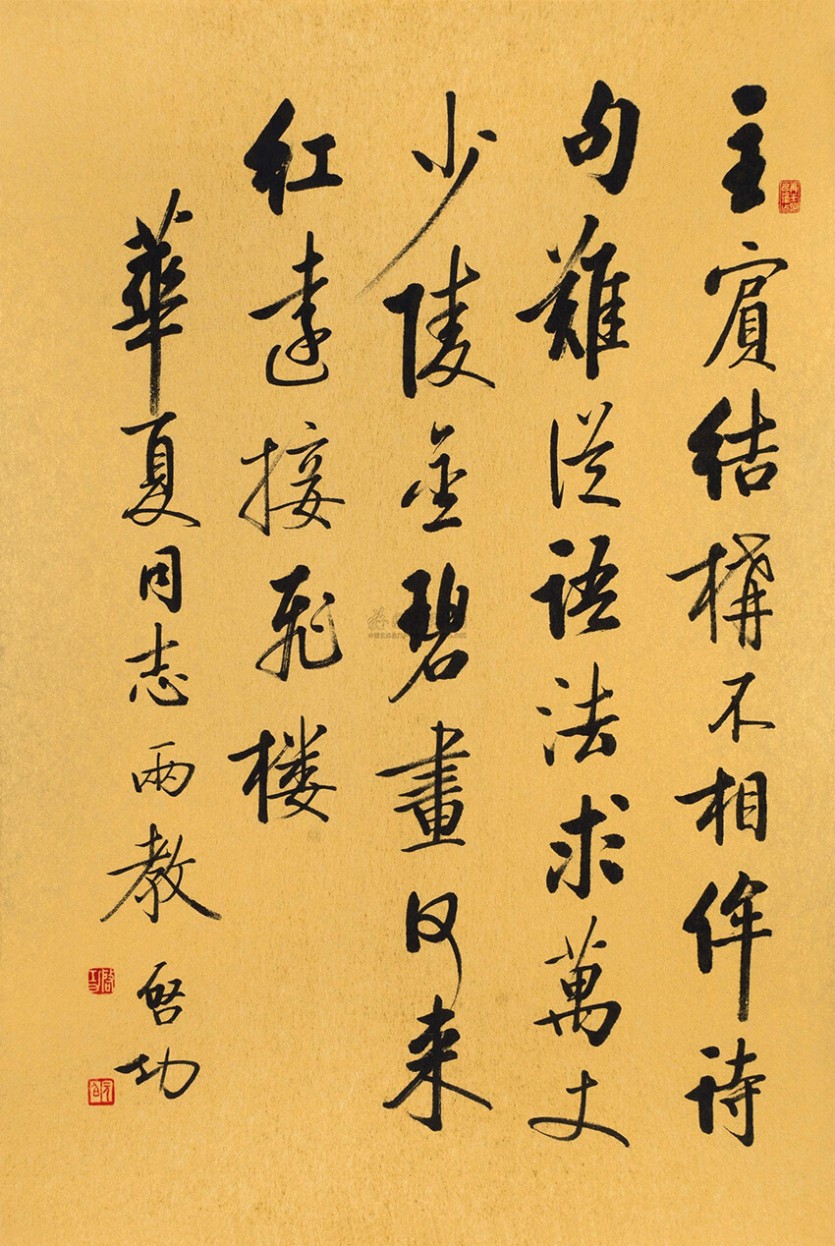 主賓結構不相侔詩
句難從語法求萬丈
少陵金碧畫何来
紅遠接飛楼
華夏同志兩教
啓功